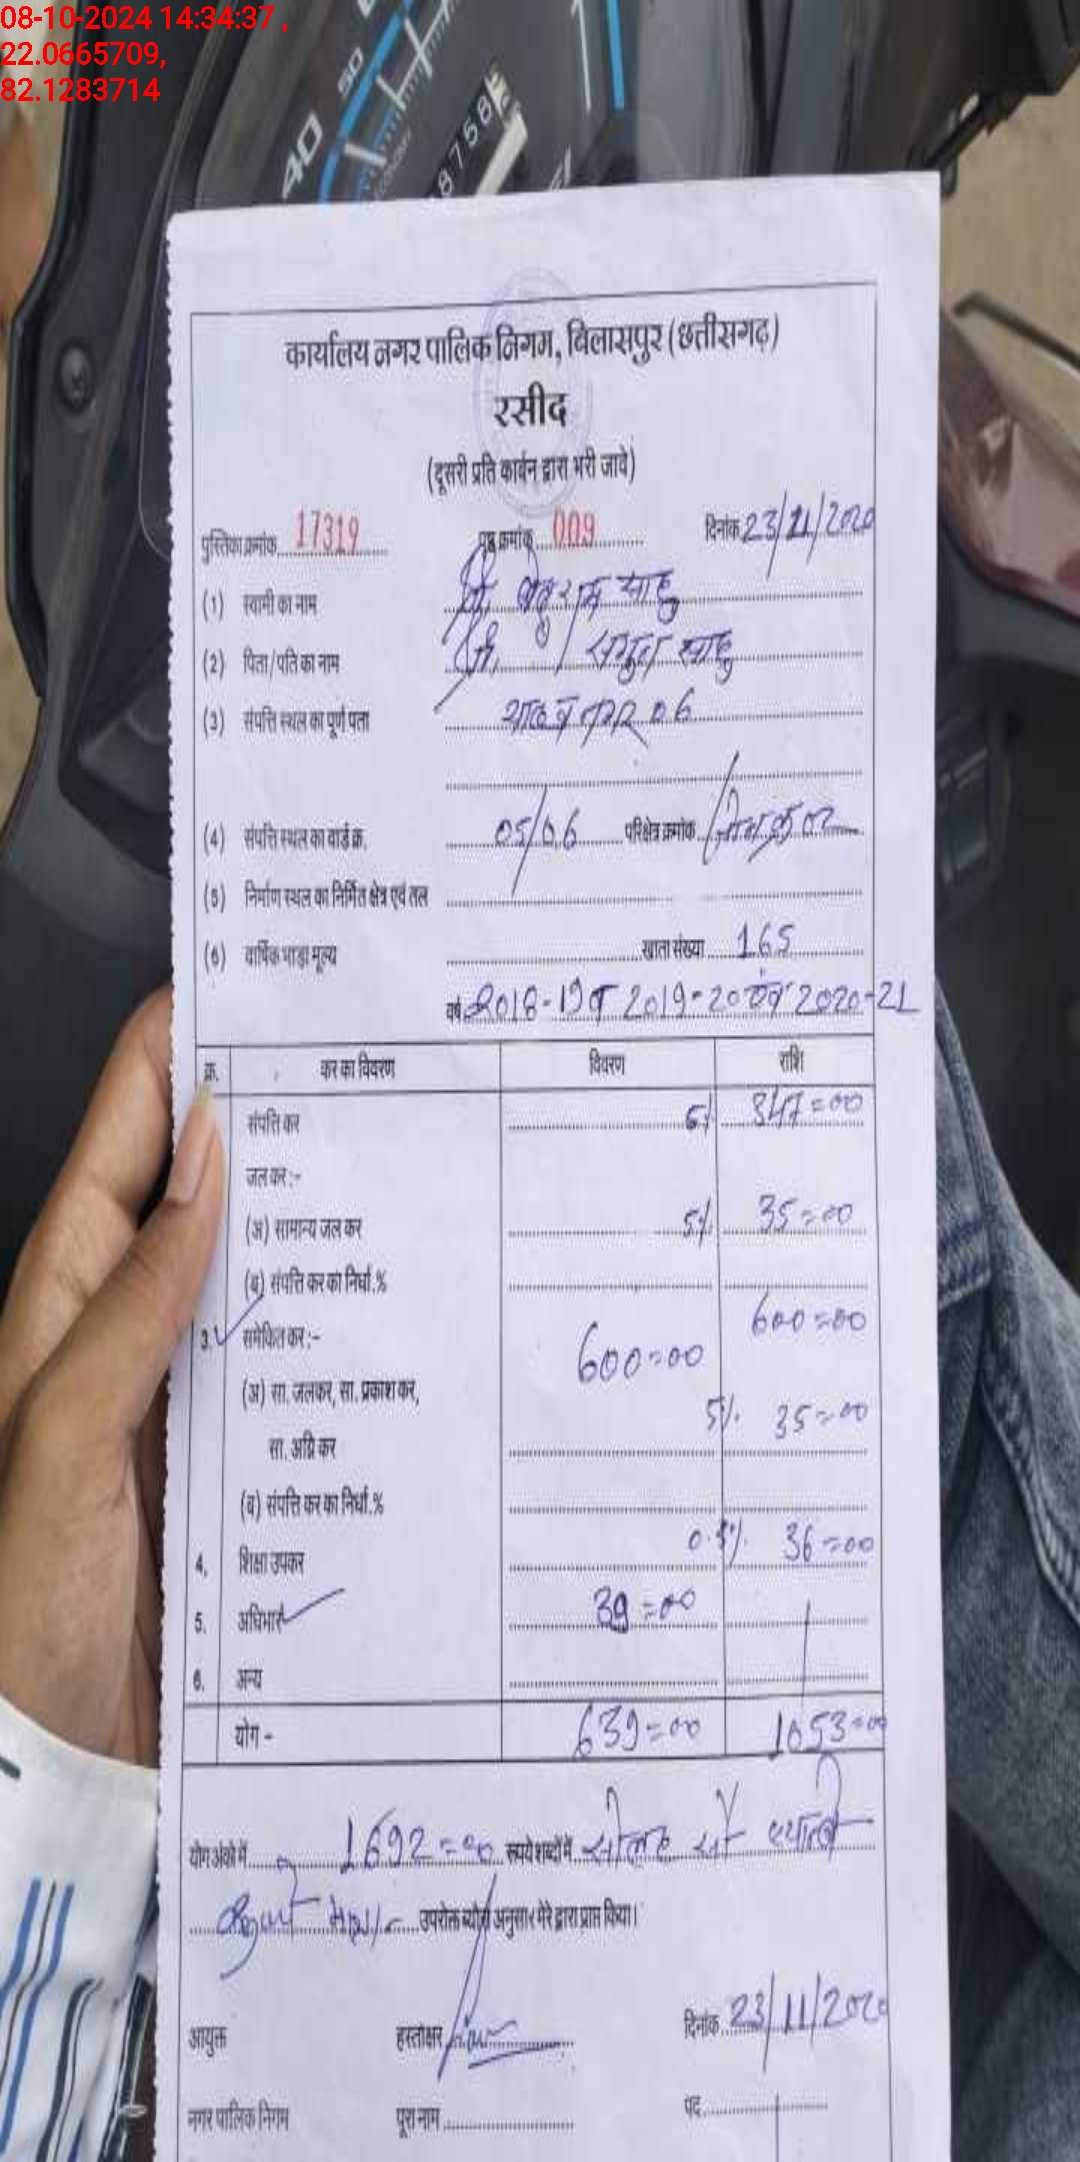 08-10-2024 14:34:37 ,
22.0665709,
82.1283714
50
40
8758
कार्यालय नगर पालिक निगम, बिलासपुर (छत्तीसगढ़)
रसीद
(दूसरी प्रति कार्बन द्वारा भरी जावे)
पुस्तिका क्रमांक 17319 पृष्ठ क्रमांक 009 दिनांक 23/11/2020
(1) स्वामी का नाम साहू
(2) पिता/पति का नाम साहू
(3) संपत्ति स्थल का पूर्ण पता नगर 06
(4) संपत्ति स्थल का वार्ड क्र. 05/06 परिक्षेत्र क्रमांक
(5) निर्माण स्थल का निर्मित क्षेत्र एवं तल
(6) वार्षिक भाड़ा मूल्य खाता संख्या 165
वर्ष 2018-19 व 2019-20 एवं 2020-21
क्र. कर का विवरण विवरण राशि
संपत्ति कर 6% 347=00
जल कर :-
(अ) सामान्य जल कर 5% 35=00
(ब) संपत्ति कर का निर्धा.%
3. समेकित कर :- 600=00 600=00
(अ) सा. जलकर, सा. प्रकाश कर, 5% 35=00
सा. अग्नि कर
(ब) संपत्ति कर का निर्धा.%
4. शिक्षा उपकर 36=00
5. अधिभार 39=00
6. अन्य
योग - 639=00 1053=00
योग अंको में 1692=00 रूपये शब्दों में सोलह सौ
मात्र/- उपरोक्त ब्यौरा अनुसार मेरे द्वारा प्राप्त किया।
आयुक्त हस्ताक्षर दिनांक 23/11/2020
नगर पालिक निगम पूरा नाम पद